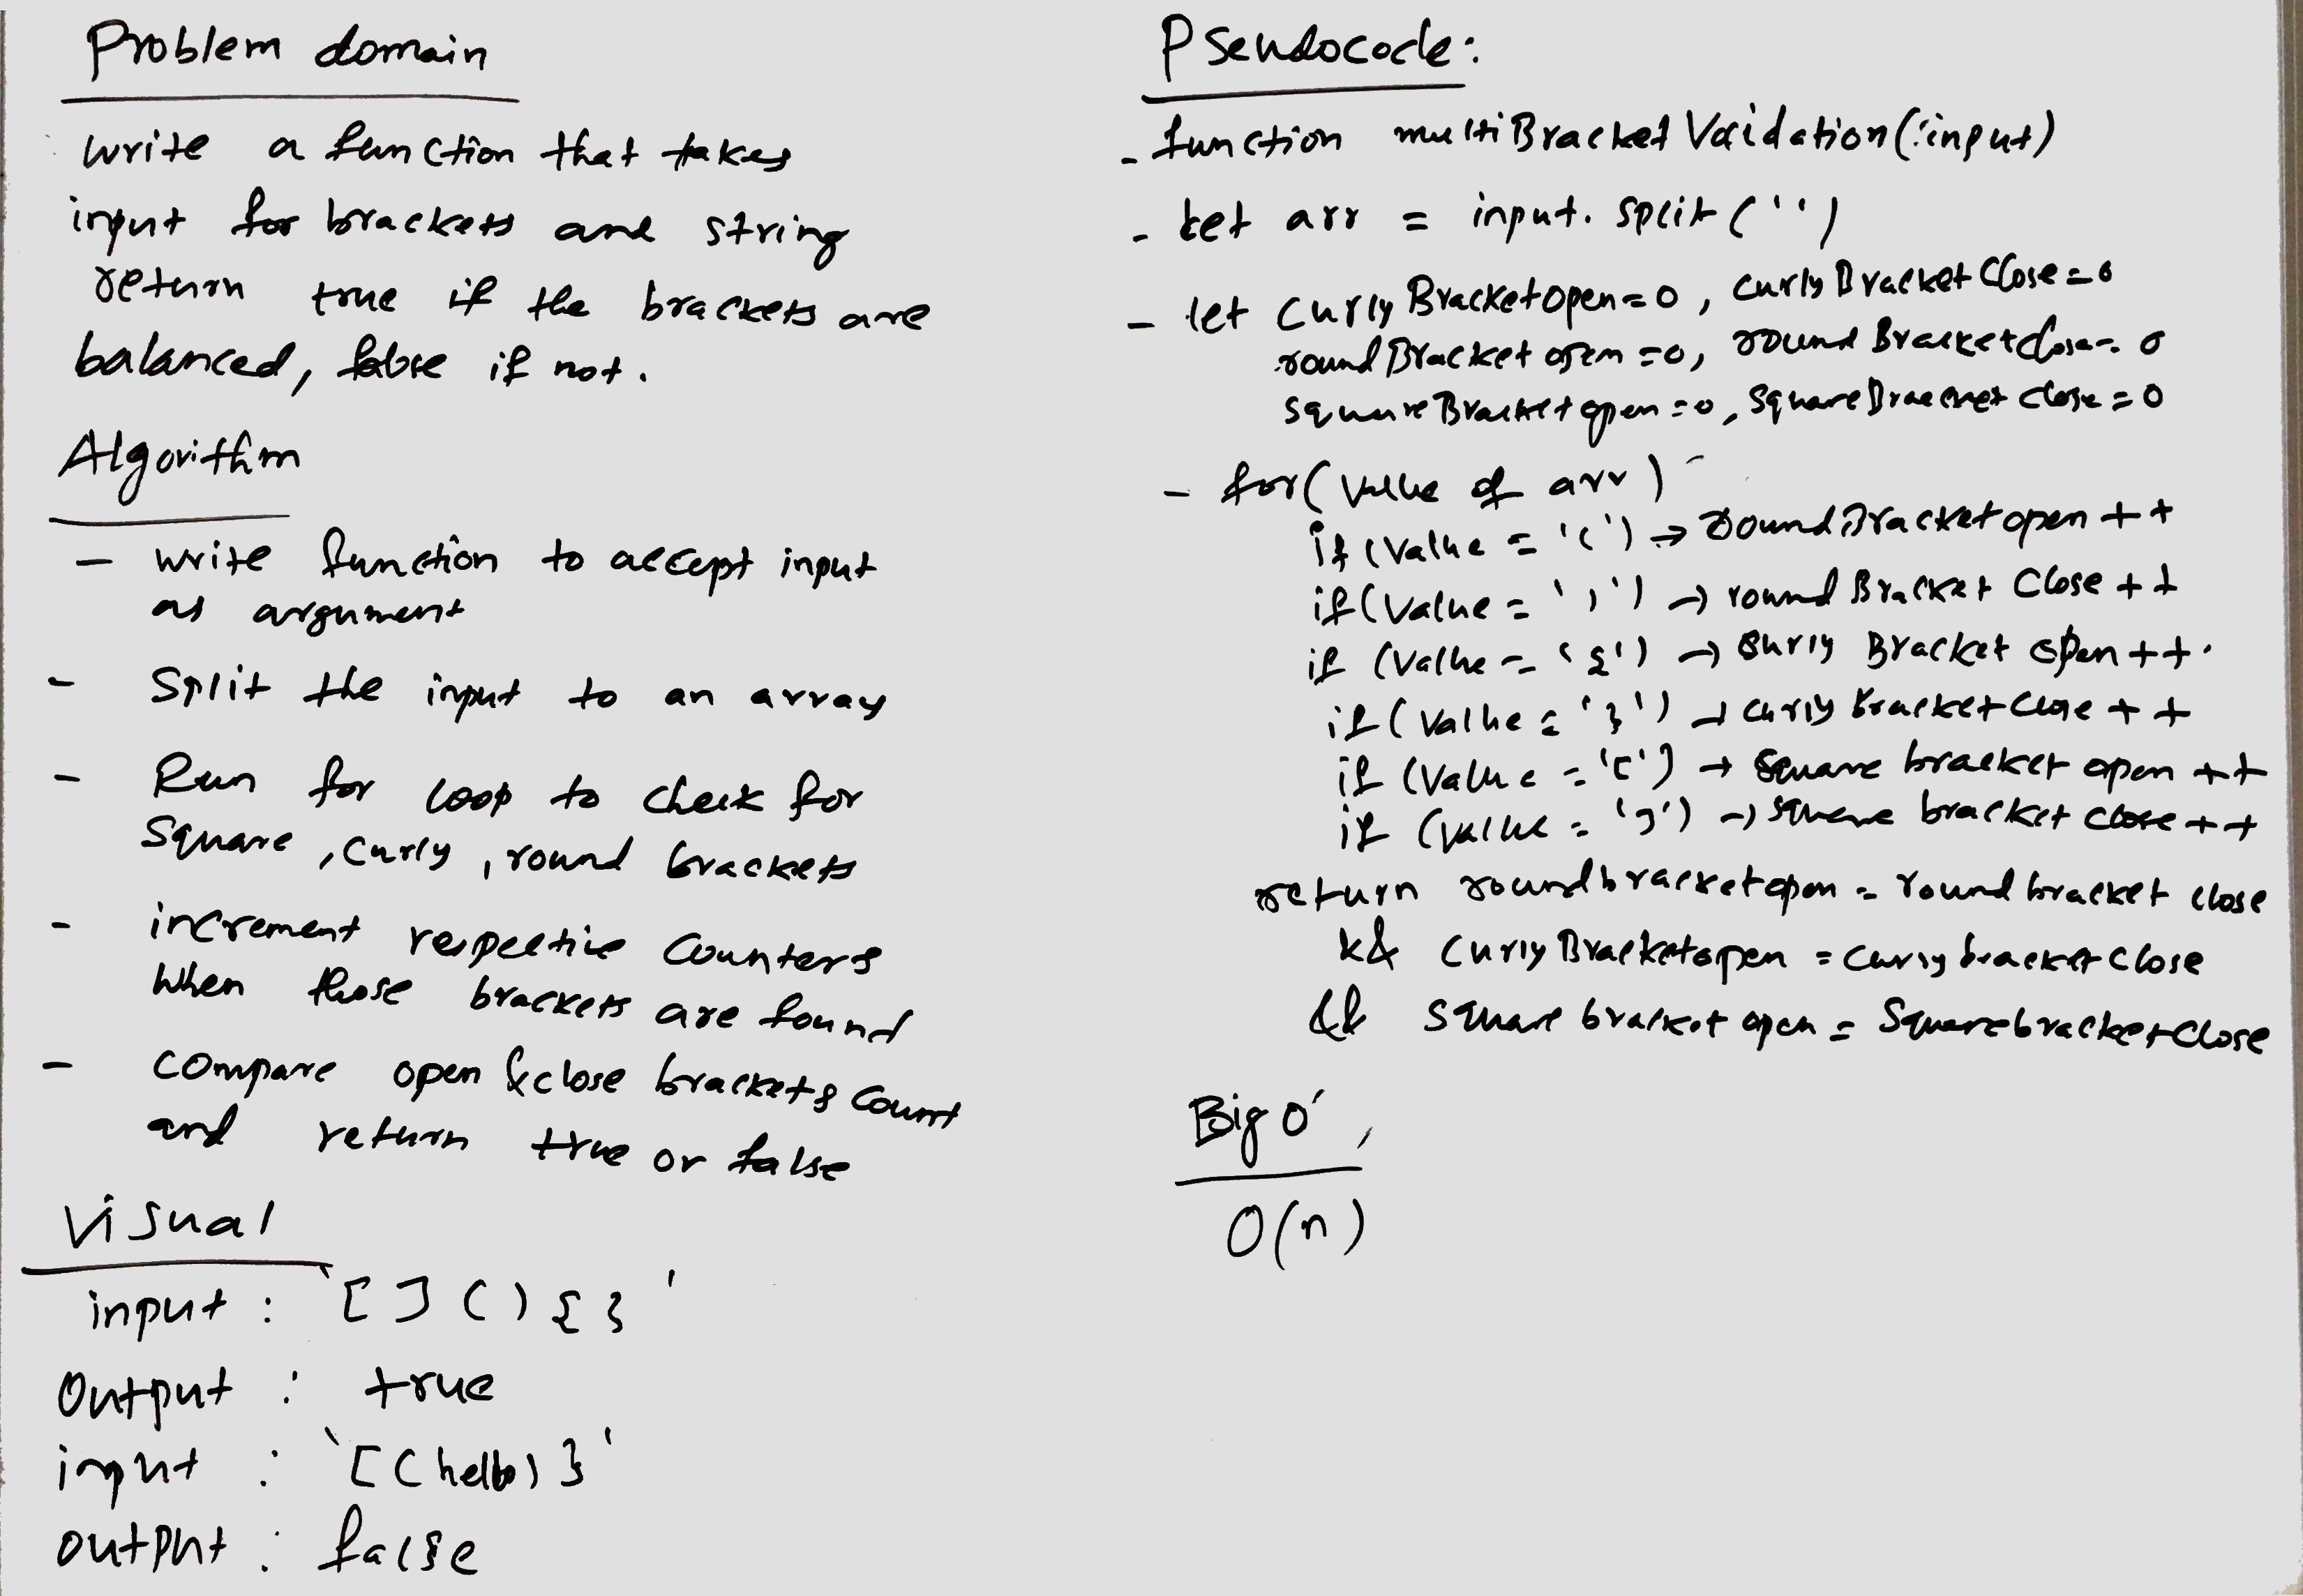 Problem domain
write a function that takes
input for brackets and string
return true if the brackets are
balanced, false if not.
Algorithm
- write function to accept input
as argument
- Split the input to an array
- Run for loop to check for
Square, curly, round brackets
- increment respective counters
when those brackets are found
- compare open & close brackets count
and return true or false
Visual
input : '[](){}'
Output : true
input : '[(hello)}'
output : false
Pseudocode:
- function multiBracketValidation(input)
- let arr = input.split('')
- let curlyBracketopen=0, curlyBracketClose=0
roundBracketopen=0, roundBracketclose=0
squareBracketopen=0, squareBracketclose=0
- for(value of arr)
if(value = '(') → roundBracketopen++
if(value = ')') → roundBracket Close++
if (value = '{') → curly Bracket open++
if(value = '}') → curly bracketclose++
if (value = '[') → square bracket open++
if (value = ']') → square bracket close++
return roundbracketopen = round bracket close
&& curlyBracketopen = curlybracketclose
&& square bracket open = Squarebracketclose
Big O
O(n)